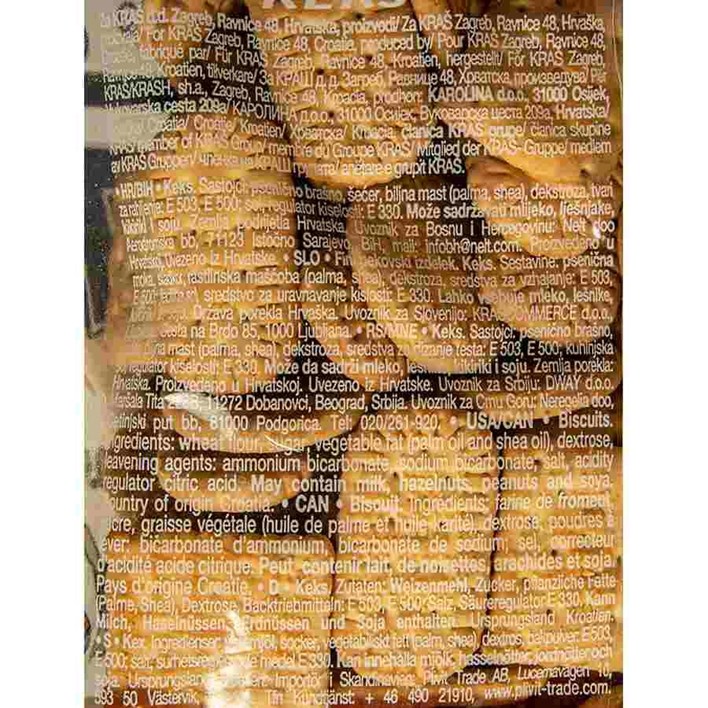 KRAŠ
Za KRAŠ d.d. Zagreb, Ravnice 48, Hrvatska, proizvodi/ Za KRAŠ Zagreb, Ravnice 48, Hrvaška,
For KRAŠ Zagreb, Ravnice 48, Croatia, produced by/ Pour KRAŠ Zagreb, Ravnice 48,
fabriqué par/ Für KRAŠ Zagreb, Ravnice 48, Kroatien, hergestellt/ För KRAŠ Zagreb,
Ravnice 48, Kroatien, tillverkare/ За КРАШ д.д. Загреб, Равнице 48, Хрватска, произведува/ Për
KRAŠ/KRASH, sh.a., Zagreb, Ravnice 48, Kroacia, prodhon: KAROLINA d.o.o., 31000 Osijek,
Vukovarska cesta 209a/ КАРОЛИНА д.о.о., 31000 Осијек, Вуковарска цеста 209а, Hrvatska/
Croatia/ Croatie/ Kroatien/ Хрватска/ Kroacia, članica KRAŠ grupe/ članica skupine
KRAŠ/ member of KRAŠ Group/ membre du Groupe KRAŠ/ Mitglied der KRAŠ- Gruppe/ medlem
av KRAŠ Gruppen/ членка на КРАШ групата/ anëtare e grupit KRAŠ.
• HR/BIH • Keks. Sastojci: pšenično brašno, šećer, biljna mast (palma, shea), dekstroza, tvari
za rahljenje: E 503, E 500; sol, regulator kiselosti: E 330. Može sadržavati mlijeko, lješnjake,
kikiriki i soju. Zemlja podrijetla Hrvatska. Uvoznik za Bosnu i Hercegovinu: Nelt doo
Aerodromska bb, 71123 Istočno Sarajevo, BiH, mail: infobh@nelt.com. Proizvedeno u
Hrvatskoj. Uvezeno iz Hrvatske. • SLO • Fini pekovski izdelek. Keks. Sestavine: pšenična
moka, sladkor, rastlinska maščoba (palma, shea), dekstroza, sredstva za vzhajanje: E 503,
E 500; jedilna sol, sredstvo za uravnavanje kislosti: E 330. Lahko vsebuje mleko, lešnike,
soju. Država porekla Hrvaška. Uvoznik za Slovenijo: KRAŠ COMMERCE d.o.o.,
cesta na Brdo 85, 1000 Ljubljana. • RS/MNE • Keks. Sastojci: pšenično brašno,
biljna mast (palma, shea), dekstroza, sredstva za dizanje testa: E 503, E 500; kuhinjska
so, regulator kiselosti: E 330. Može da sadrži mleko, lešnik, kikiriki i soju. Zemlja porekla:
Hrvatska. Proizvedeno u Hrvatskoj. Uvezeno iz Hrvatske. Uvoznik za Srbiju: DWAY d.o.o.
Maršala Tita 11272 Dobanovci, Beograd, Srbija. Uvoznik za Crnu Goru: Neregelia doo,
Cetinjski put bb, 81000 Podgorica. Tel: 020/261-920. • USA/CAN • Biscuits.
Ingredients: wheat flour, sugar, vegetable fat (palm oil and shea oil), dextrose,
leavening agents: ammonium bicarbonate, sodium bicarbonate; salt, acidity
regulator citric acid. May contain milk, hazelnuts, peanuts and soya.
Country of origin Croatia. • CAN • Biscuit. Ingrédients: farine de froment,
sucre, graisse végétale (huile de palme et huile karité), dextrose, poudres à
lever: bicarbonate d'ammonium, bicarbonate de sodium; sel, correcteur
d'acidité acide citrique. Peut contenir lait, de noisettes, arachides et soja.
Pays d'origine Croatie. • D • Keks. Zutaten: Weizenmehl, Zucker, pflanzliche Fette
(Palme, Shea), Dextrose, Backtriebmitteln: E 503, E 500; Salz, Säureregulator E 330. Kann
Milch, Haselnüssen, Erdnüssen und Soja enthalten. Ursprungsland Kroatien.
• S • Kex. Ingredienser: vetemjöl, socker, vegetabiliskt fett (palm, shea), dextros, bakpulver: E 503,
E 500; salt, surhetsreglerande medel E 330. Kan innehålla mjölk, hasselnötter, jordnötter och
soja. Ursprungsland Kroatien. Importör i Skandinavien: Plivit Trade AB, Lucernavägen 10,
593 50 Västervik, Tfn Kundtjänst: + 46 490 21910, www.plivit-trade.com.